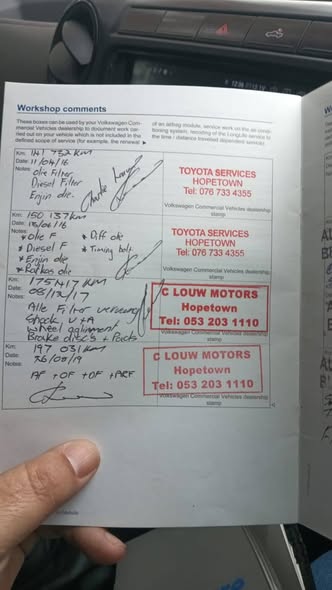 Workshop comments
These boxes can be used by your Volkswagen Com-
mercial Vehicles dealership to document work car-
ried out on your vehicle which is not included in the
defined scope of service (for example, the renewal ►
of an airbag module, service work on the air condi-
tioning system, recoding of the LongLife service to
the time / distance travelled dependent service).
Km: 141 732 KM
Date: 11/04/16
Notes: Olie Filter
Diesel Filter
Enjin olie.
TOYOTA SERVICES
HOPETOWN
Tel: 076 733 4355
Volkswagen Commercial Vehicles dealership
stamp
Km: 150 137 km
Date: 15/06/16
Notes:
* Olie F * Diff olie
* Diesel F * Timing belt
* Enjin olie
* Ratkas olie
TOYOTA SERVICES
HOPETOWN
Tel: 076 733 4355
Volkswagen Commercial Vehicles dealership
stamp
Km: 175417 KM
Date: 08/12/17
Notes:
Alle Filter vervang
Shock V+A
wheel alignment
Brake discs + Pads
C LOUW MOTORS
Hopetown
Tel: 053 203 1110
Volkswagen Commercial Vehicles dealership
stamp
Km: 197 031 KM
Date: 26/02/19
Notes:
AF + OF + DF + ARF
C LOUW MOTORS
Hopetown
Tel: 053 203 1110
Volkswagen Commercial Vehicles dealership
stamp